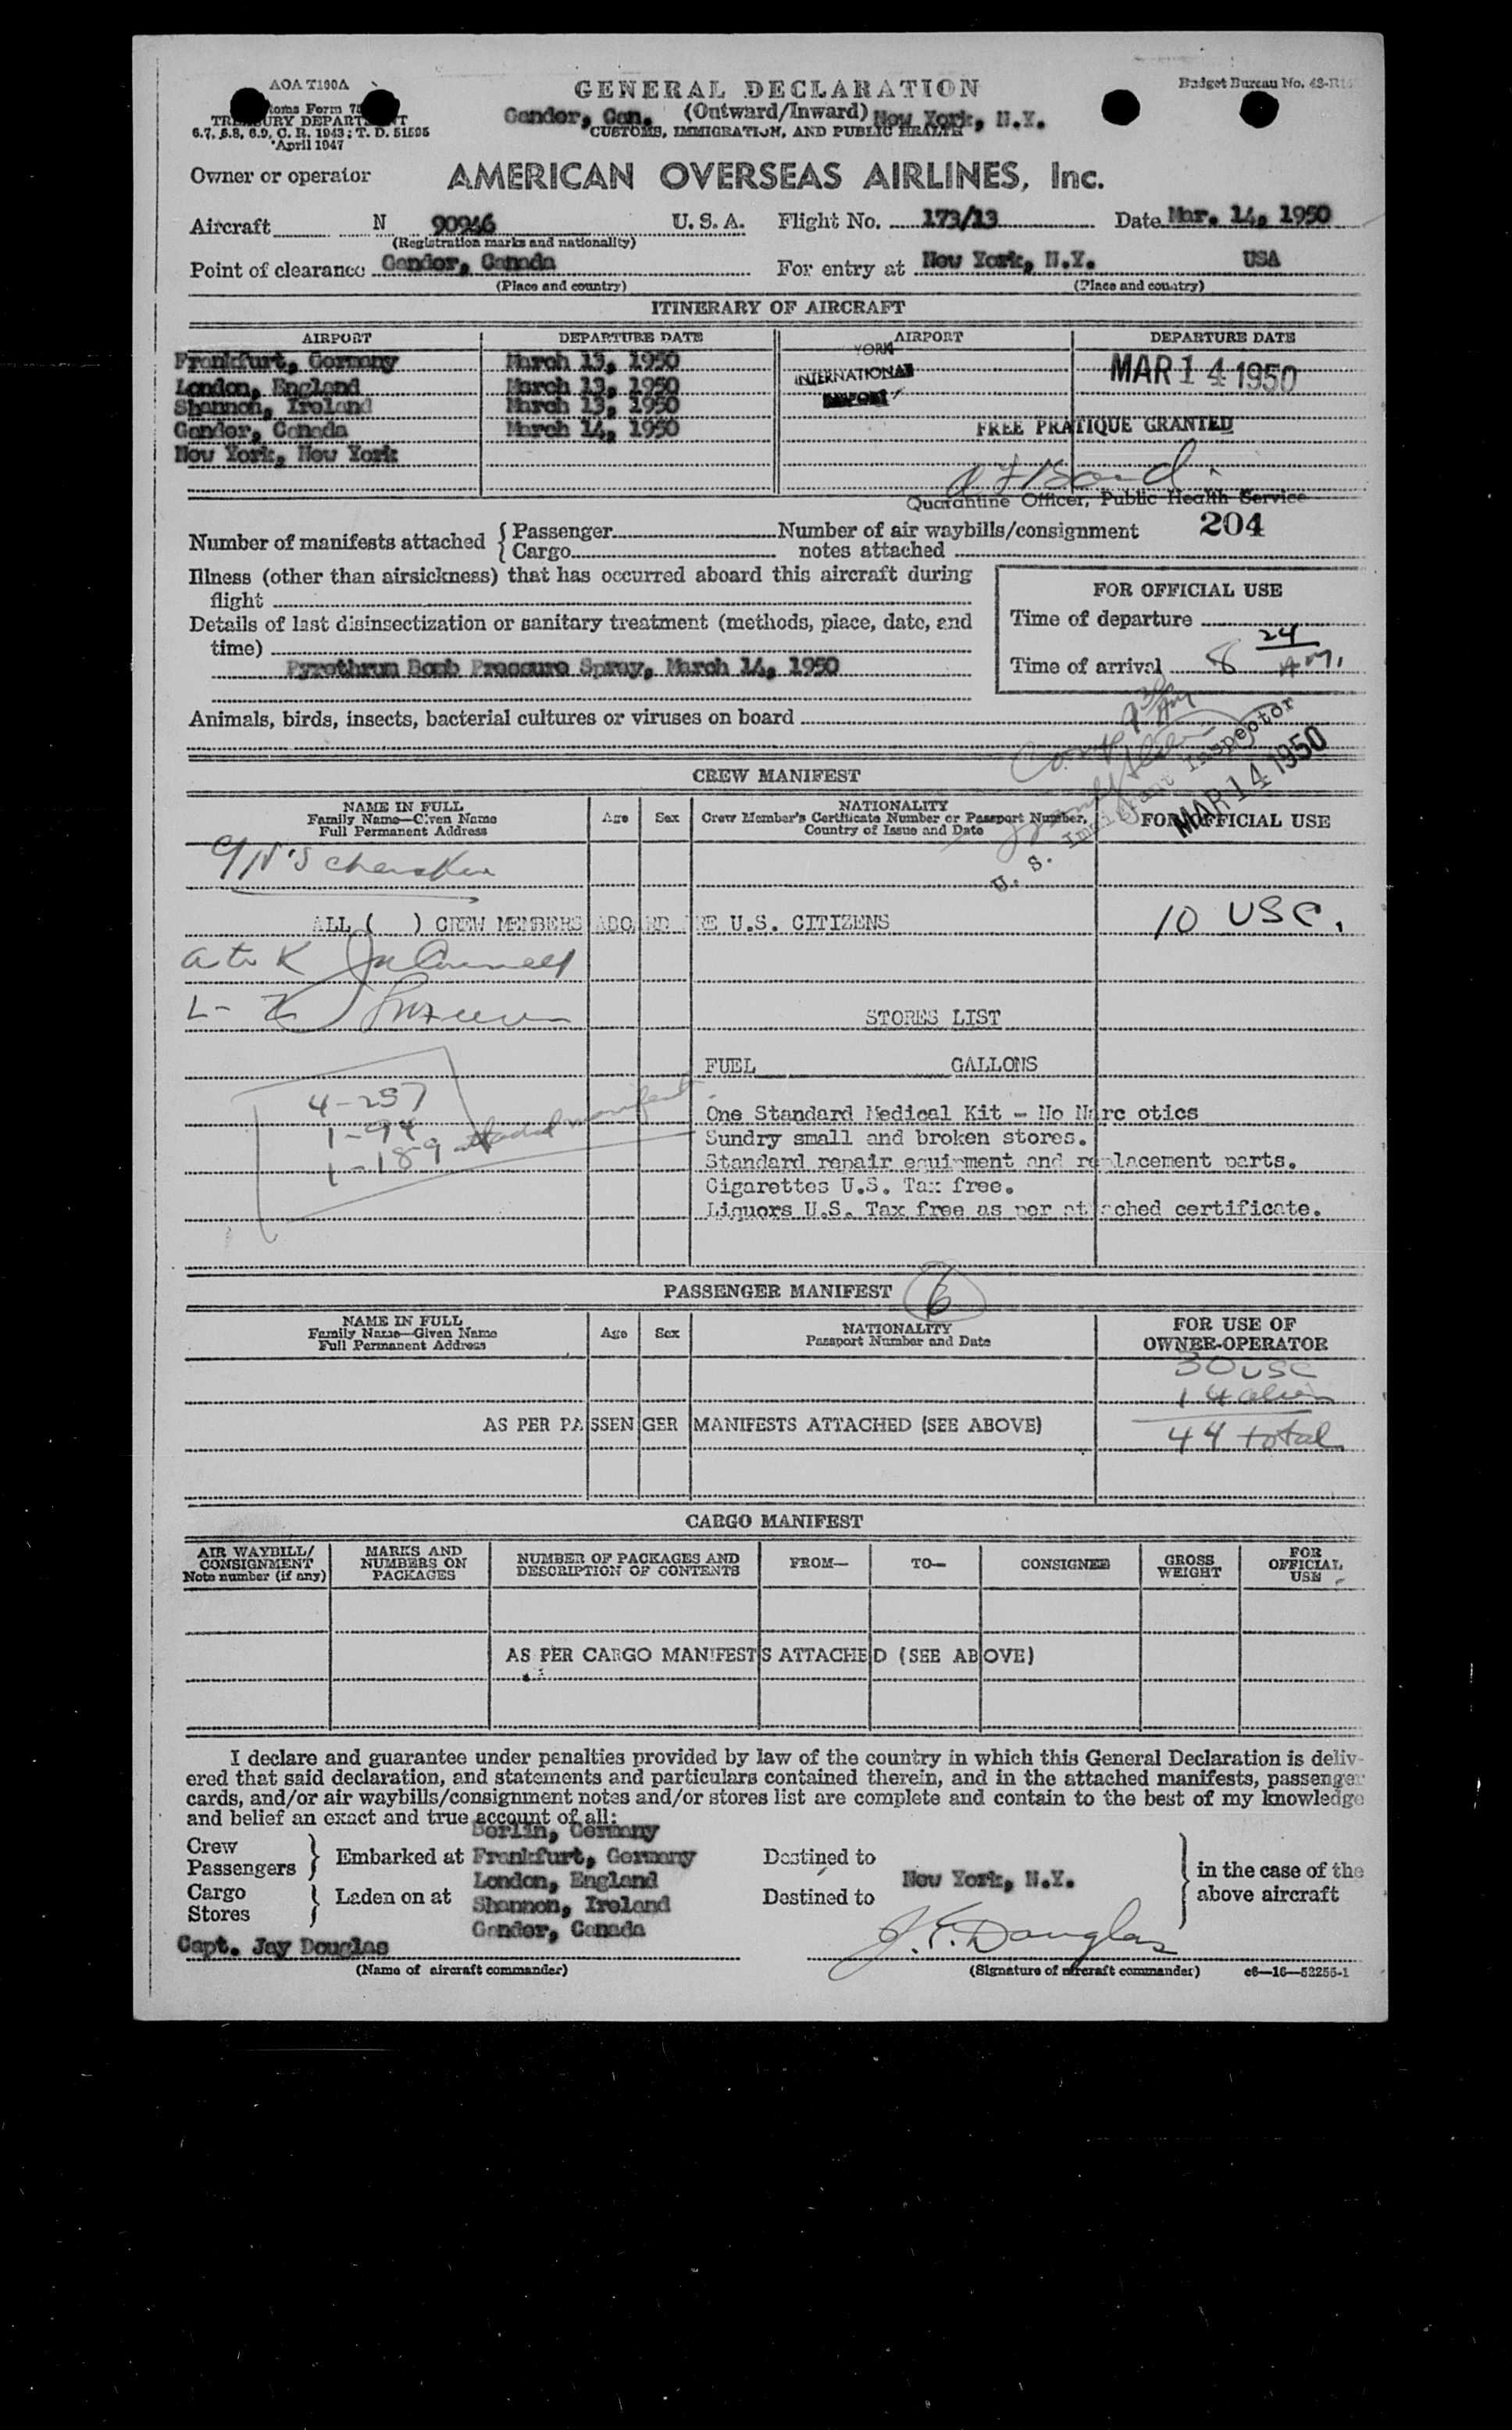 AOA T100A
GENERAL DECLARATION
Budget Bureau No.
Customs Form
Gander, Can. (Outward/Inward) New York, N.Y.
TREASURY DEPARTMENT
CUSTOMS, IMMIGRATION, AND PUBLIC HEALTH
6.7, 6.8, 6.9, C. R. 1943; T. D. 51505
April 1947
Owner or operator AMERICAN OVERSEAS AIRLINES, Inc.
Aircraft N 90946 U. S. A. Flight No. 173/13 Date Mar. 14, 1950
(Registration marks and nationality)
Point of clearance Gander, Canada For entry at New York, N.Y. USA
(Place and country) (Place and country)
ITINERARY OF AIRCRAFT
AIRPORT DEPARTURE DATE AIRPORT DEPARTURE DATE
YORK
Frankfurt, Germany March 13, 1950
INTERNATIONAL MAR 14 1950
London, England March 13, 1950
AIRPORT
Shannon, Ireland March 13, 1950
Gander, Canada March 14, 1950 FREE PRATIQUE GRANTED
New York, New York
Quarantine Officer, Public Health Service
204
Number of manifests attached { Passenger Number of air waybills/consignment
Cargo notes attached
Illness (other than airsickness) that has occurred aboard this aircraft during
flight
FOR OFFICIAL USE
Details of last disinsectization or sanitary treatment (methods, place, date, and
time)
Time of departure
Pyrethrum Bomb Pressure Spray, March 14, 1950
Time of arrival 8 24 A.M.
Animals, birds, insects, bacterial cultures or viruses on board
U. S. Immigrant Inspector
MAR 14 1950
CREW MANIFEST
NAME IN FULL
Family Name—Given Name
Full Permanent Address
Age Sex
NATIONALITY
Crew Member's Certificate Number or Passport Number,
Country of Issue and Date
FOR OFFICIAL USE
ALL ( ) CREW MEMBERS ABOARD ARE U.S. CITIZENS 10 USC.
a to K
L - Z
STORES LIST
FUEL GALLONS
4-257
1-94
1-189 attached manifest
One Standard Medical Kit - No Narc otics
Sundry small and broken stores.
Standard repair equipment and replacement parts.
Cigarettes U.S. Tax free.
Liquors U.S. Tax free as per attached certificate.
PASSENGER MANIFEST 6
NAME IN FULL
Family Name—Given Name
Full Permanent Address
Age Sex
NATIONALITY
Passport Number and Date
FOR USE OF
OWNER-OPERATOR
30 USC
14 alien
AS PER PASSENGER MANIFESTS ATTACHED (SEE ABOVE)
44 total
CARGO MANIFEST
AIR WAYBILL/
CONSIGNMENT
Note number (if any)
MARKS AND
NUMBERS ON
PACKAGES
NUMBER OF PACKAGES AND
DESCRIPTION OF CONTENTS
FROM— TO— CONSIGNEE
GROSS
WEIGHT
FOR
OFFICIAL
USE
AS PER CARGO MANIFESTS ATTACHED (SEE ABOVE)
I declare and guarantee under penalties provided by law of the country in which this General Declaration is deliv-
ered that said declaration, and statements and particulars contained therein, and in the attached manifests, passenger
cards, and/or air waybills/consignment notes and/or stores list are complete and contain to the best of my knowledge
and belief an exact and true account of all:
Berlin, Germany
Crew
Passengers } Embarked at Frankfurt, Germany Destined to
London, England New York, N.Y. in the case of the
above aircraft
Cargo
Stores } Laden on at Shannon, Ireland Destined to
Gander, Canada
Capt. Jay Douglas J. E. Douglas
(Name of aircraft commander) (Signature of aircraft commander) c6—16—52255-1